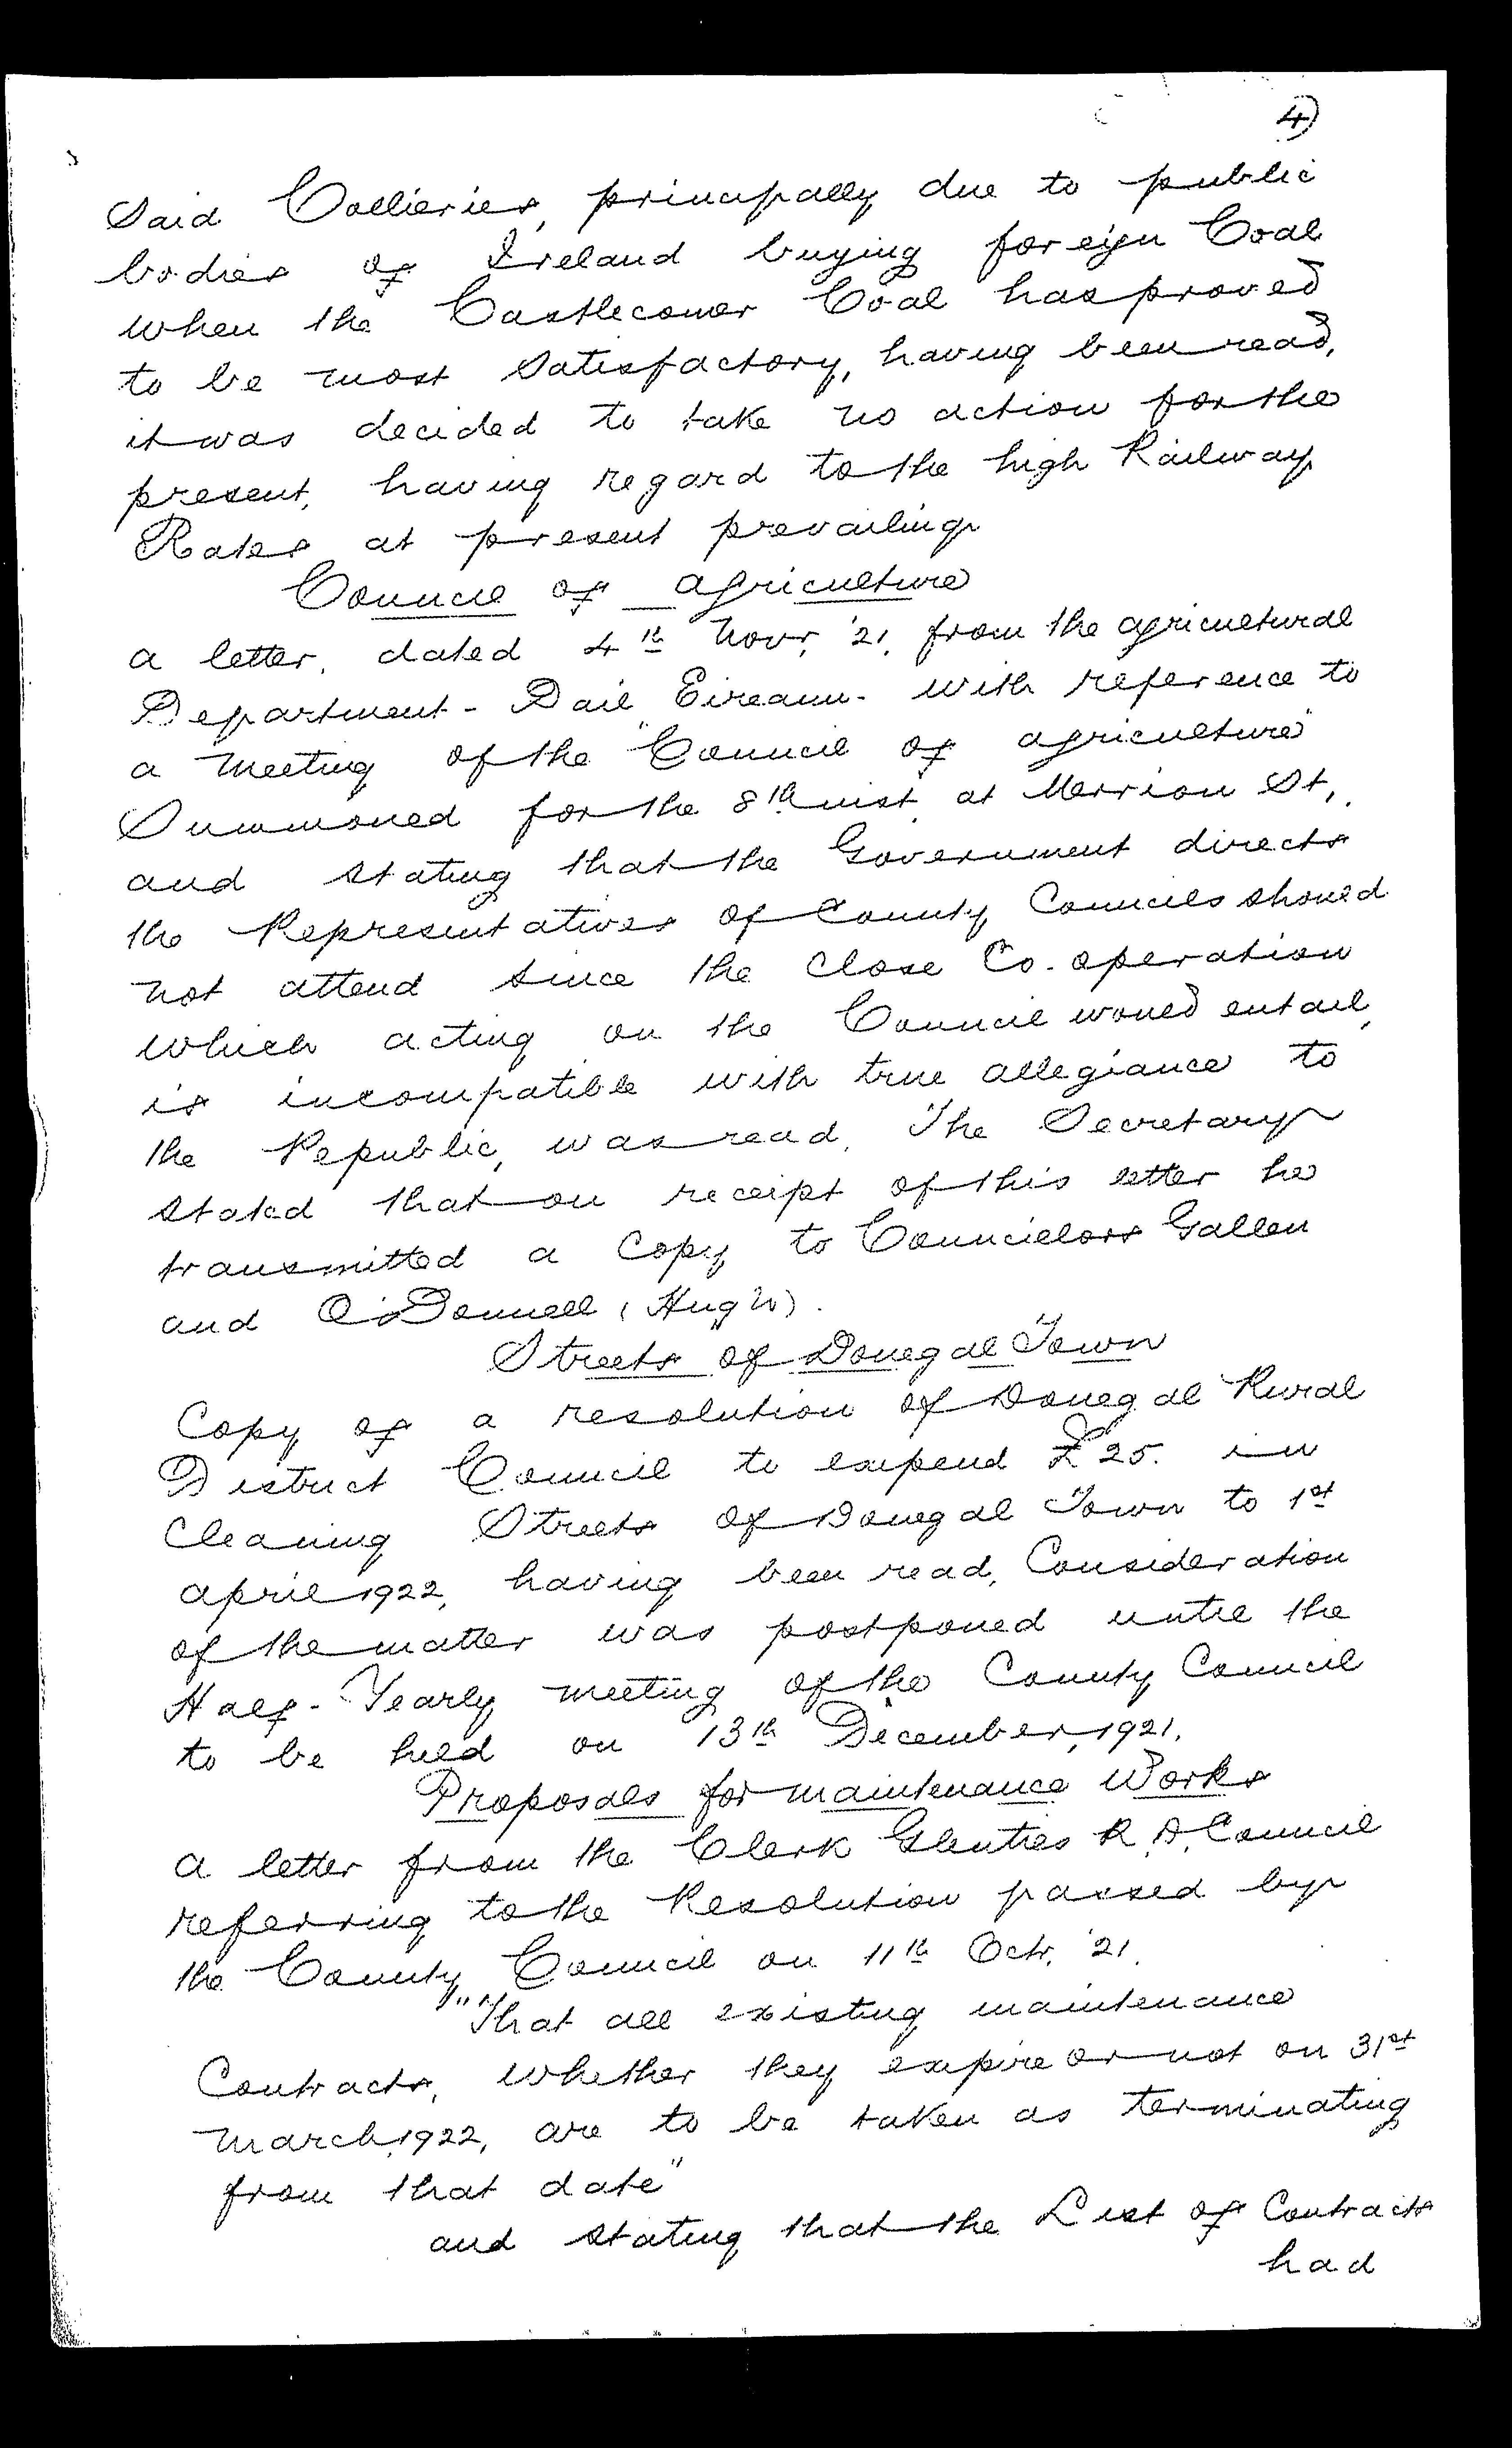 4)
Said Collieries, principally due to public
bodies of Ireland buying foreign Coal
when the Castlecomer Coal has proved
to be most satisfactory, having been read,
it was decided to take no action for the
present, having regard to the high Railway
Rates at present prevailing.
Council of Agriculture
A letter, dated 4th Novr, '21, from the Agricultural
Department - Dail Eireann - with reference to
a meeting of the "Council of Agriculture"
Summoned for the 8th inst, at Merrion St.,
and stating that the Government directs
the Representatives of County Councils should
not attend since the close Co-operation
which acting on the Council would entail,
is incompatible with true allegiance to
the Republic, was read. The Secretary
stated that on receipt of this letter he
transmitted a Copy to Councillors Gallen
and O'Donnell (Hugh).
Streets of Donegal Town
Copy of a resolution of Donegal Rural
District Council to expend £25. in
Cleaning Streets of Donegal Town to 1st
April 1922, having been read, Consideration
of the matter was postponed until the
Half-Yearly meeting of the County Council
to be held on 13th December, 1921.
Proposals for maintenance Works
A letter from the Clerk Glenties R.D. Council
referring to the Resolution passed by
the County Council on 11th Octr. '21.
"That all existing maintenance
Contracts, whether they expire or not on 31st
March, 1922, are to be taken as terminating
from that date"
and stating that the List of Contracts
had